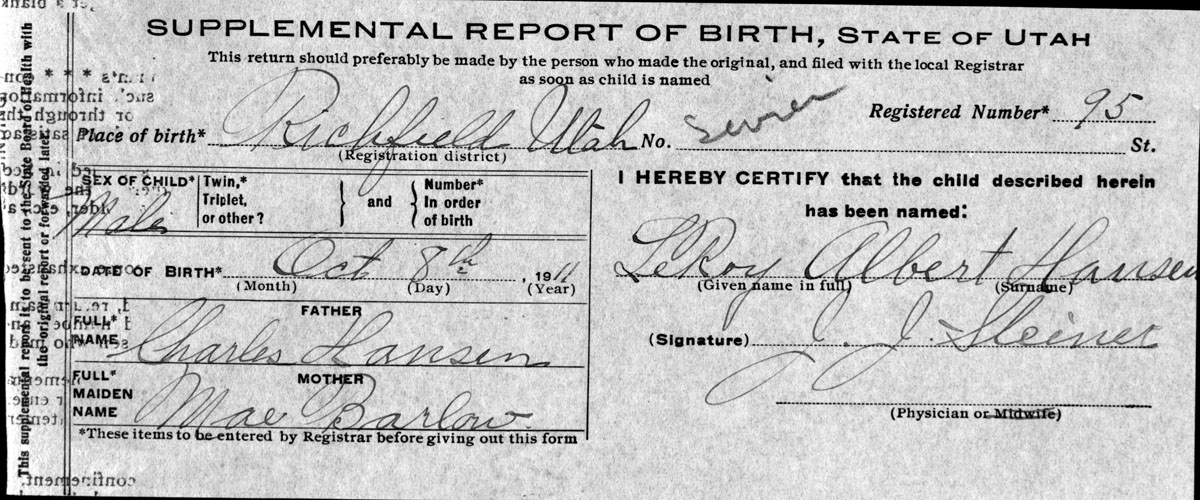 SUPPLEMENTAL REPORT OF BIRTH, STATE OF UTAH
This return should preferably be made by the person who made the original, and filed with the local Registrar
as soon as child is named
Registered Number* 95
Place of birth* Richfield Utah No. Sevier St.
(Registration district)
SEX OF CHILD* Male
Twin,*
Triplet,
or other?
and
Number*
In order
of birth
DATE OF BIRTH* Oct 8th, 1911
(Month) (Day) (Year)
FATHER
FULL*
NAME Charles Hansen
MOTHER
FULL*
MAIDEN
NAME Mae Barlow
*These items to be entered by Registrar before giving out this form
I HEREBY CERTIFY that the child described herein
has been named:
LeRoy Albert Hansen
(Given name in full) (Surname)
(Signature) J. J. Steiner
(Physician or Midwife)
This supplemental report is to be sent to the State Board of Health with
the original report or forwarded later.